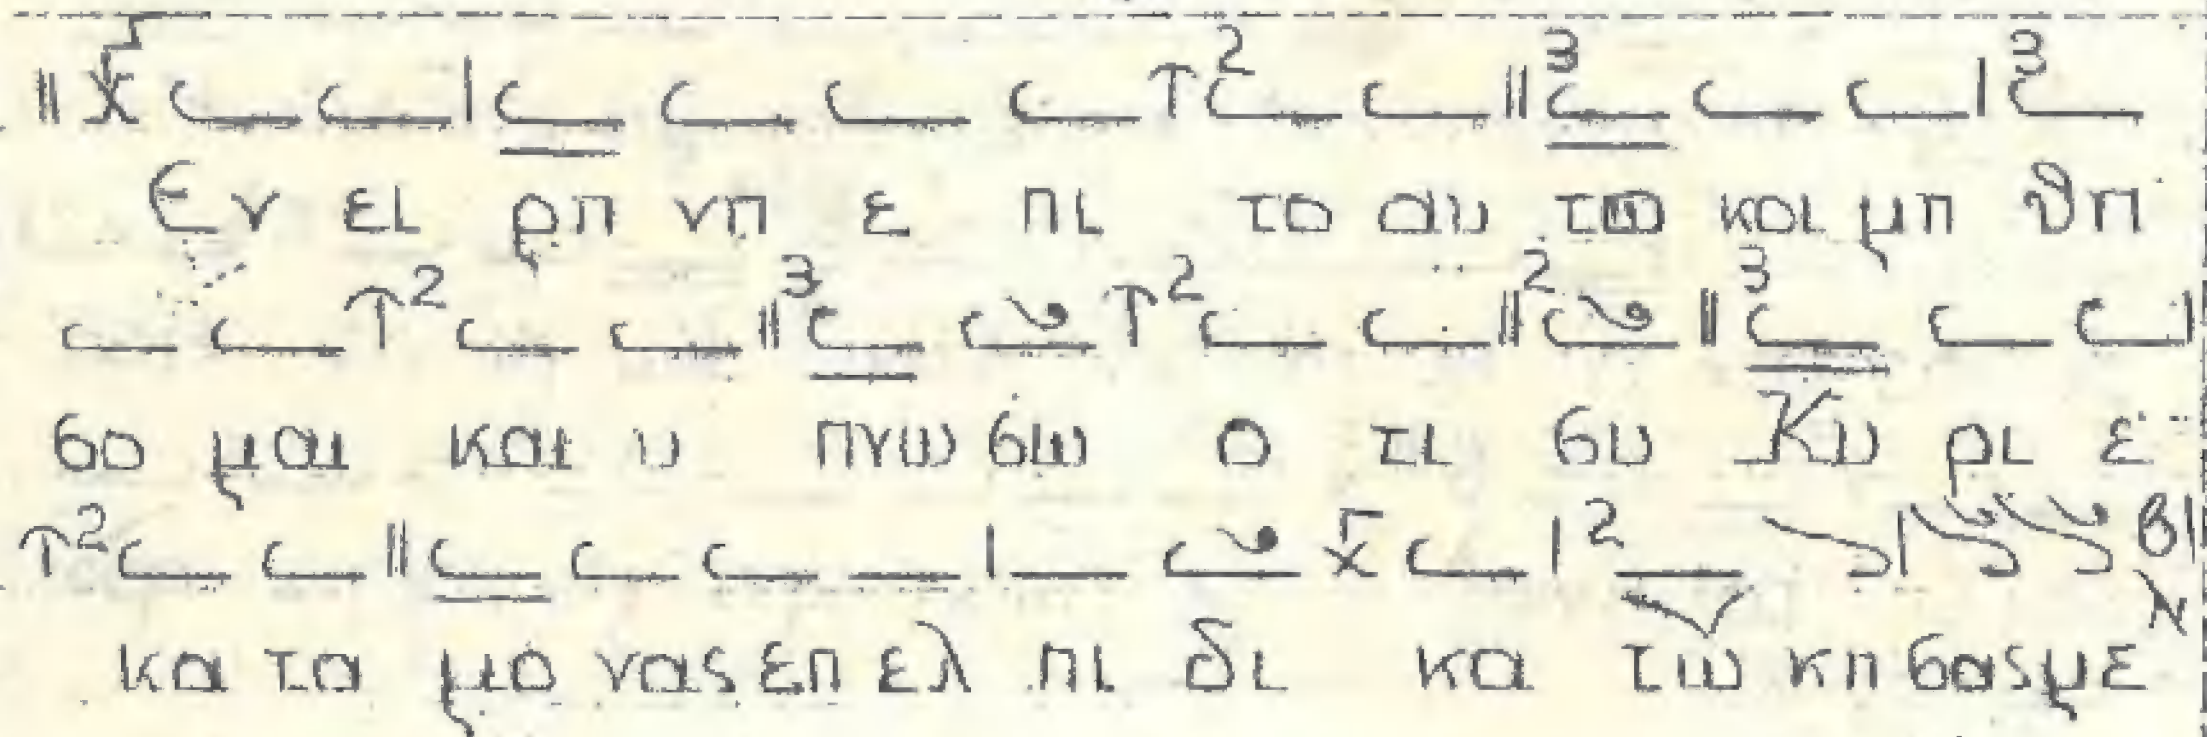 Εν ει ρη νη ε πι το αυ το και μη θη
σο μαι και υ πνω σω ο τι συ Κυ ρι ε
κα τα μο νας επ ελ πι δι κα τω κη σας με